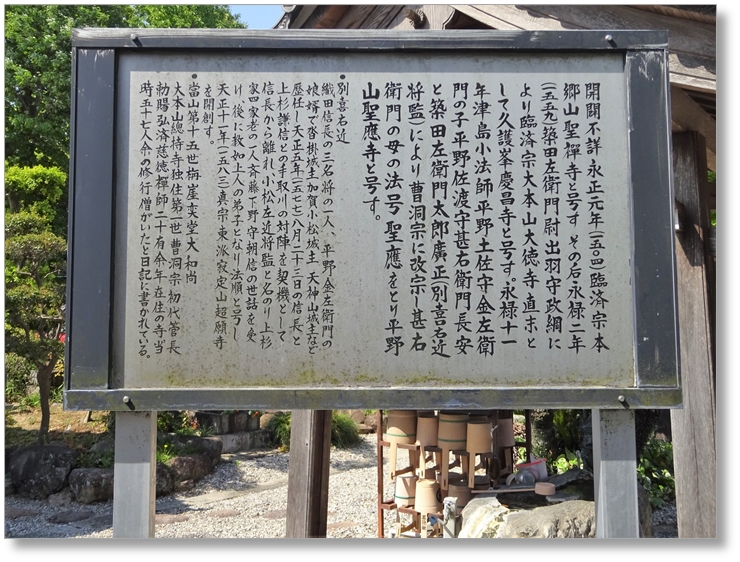 開闢不詳 永正元年(一五〇四)臨済宗本
郷山聖禅寺と号す その后・永禄二年
(一五五九)築田左衛門尉出羽守政綱に
より臨済宗大本山大徳寺直末と
して久護峯慶昌寺と号す。永禄十一
年津島小法師平野土佐守金左衛
門の子平野佐渡守甚右衛門長安
と築田左衛門太郎廣正(別喜右近
将監)により曹洞宗に改宗し甚右
衛門の母の法号聖應をとり平野
山聖應寺と号す。
●別喜右近
織田信長の三名将の一人、平野金左衛門の
娘婿で沓掛城主加賀小松城主 天神山城主など
歴任し天正五年(一五七七)八月二十三日の信長と
上杉謙信との手取川の対陣を契機として
信長から離れ 小松左近将監と名のり 上杉
家四家老の一人斉藤下野守朝信の世話を受
け、後に教如上人の弟子となり 法順と号し
天正十一年(一五八三)真宗東派寂定山超願寺
を開創す。
●當山第十五世梅崖奕堂大和尚
大本山總持寺独住第一世曹洞宗初代管長
勅賜弘済慈徳禅師二十有余年在住の寺当
時五十七人余の修行僧がいたと日記に書かれている。